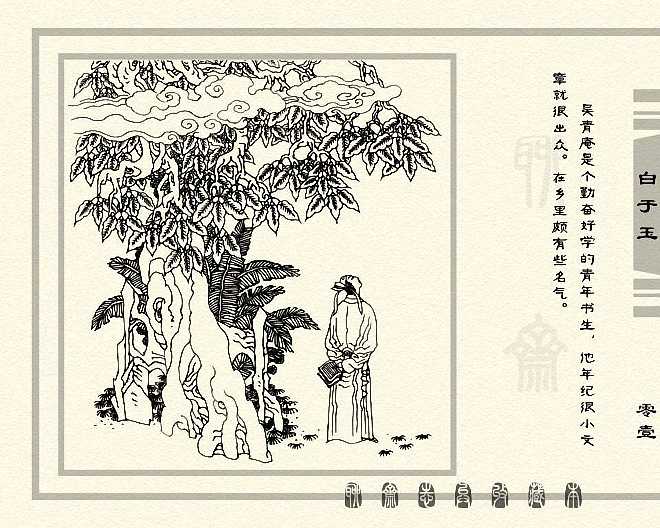 白于玉
零壹
吴青庵是个勤奋好学的青年书生，他年纪很小文
章就很出众。在乡里颇有些名气。
聊斋志异收藏本